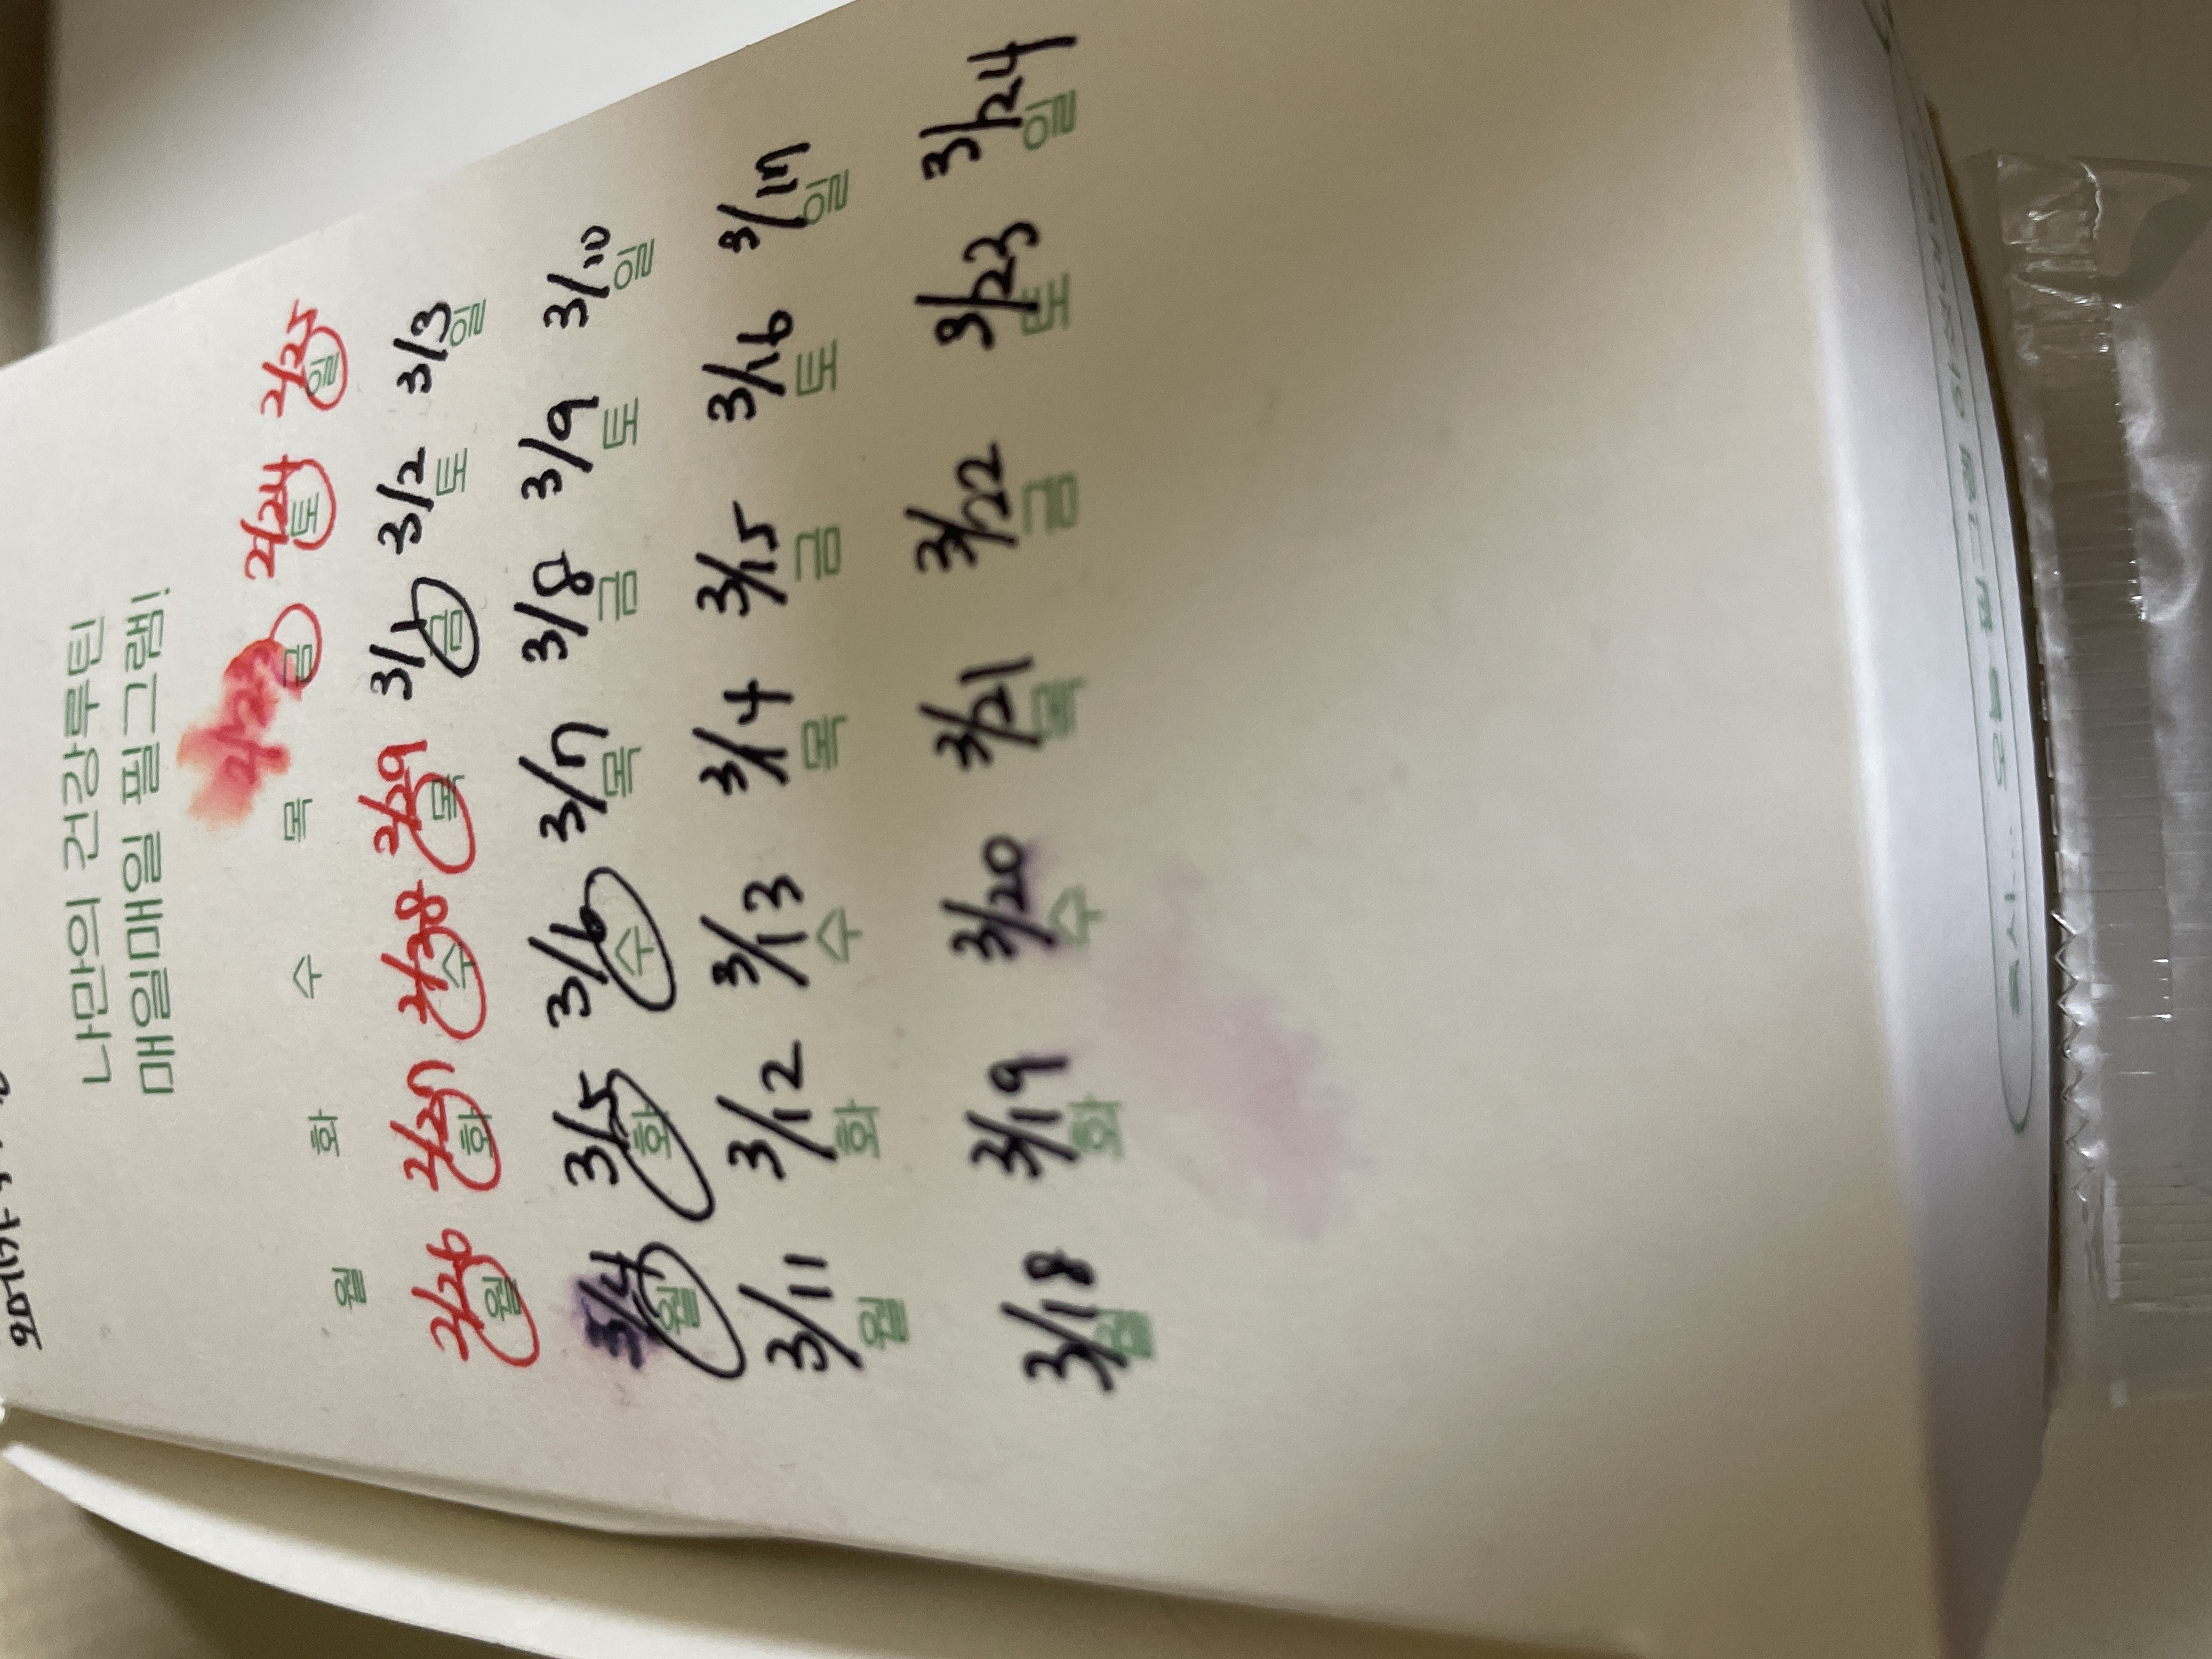 나만의 건강루틴
매일매일 필그램!
2/23 2/24 2/25
월 화 수 목 금 토 일
2/26 2/27 2/28 2/29 3/1 3/2 3/3
월 화 수 목 금 토 일
3/4 3/5 3/6 3/7 3/8 3/9 3/10
월 화 수 목 금 토 일
3/11 3/12 3/13 3/14 3/15 3/16 3/17
월 화 수 목 금 토 일
3/18 3/19 3/20 3/21 3/22 3/23 3/24
월 화 수 목 금 토 일